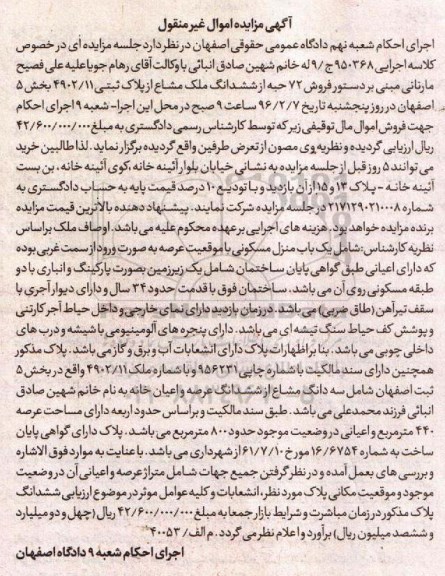 آگهی مزایده اموال غیر منقول
اجرای احکام شعبه نهم دادگاه عمومی حقوقی اصفهان در نظر دارد جلسه مزایده ای در خصوص
کلاسه اجرایی ۹۵۰۳۶۸ ج/۹ له خانم شهین صادق انبائی با وکالت آقای رهام جویا علیه علی فصیح
مارنانی مبنی بر دستور فروش ۷۲ حبه از ششدانگ ملک مشاع از پلاک ثبتی ۴۹۰۲/۱۱ بخش ۵
اصفهان در روز پنجشنبه تاریخ ۹۶/۲/۷ ساعت ۹ صبح در محل این اجرا- شعبه ۹ اجرای احکام
جهت فروش اموال مال توقیفی زیر که توسط کارشناس رسمی دادگستری به مبلغ ۴۲/۶۰۰/۰۰۰/۰۰۰
ریال ارزیابی گردیده و نظریه وی مصون از تعرض طرفین واقع گردیده برگزار نماید. لذا طالبین خرید
می توانند ۵ روز قبل از جلسه مزایده به نشانی خیابان بلوار آئینه خانه ،کوی آئینه خانه، بن بست
آئینه خانه - پلاک ۱۳ و ۱۵ از آن بازدید و با تودیع ۱۰ درصد قیمت پایه به حساب دادگستری به
شماره ۲۱۷۱۲۹۰۲۱۰۰۰۸ در جلسه مزایده شرکت نمایند. پیشنهاد دهنده بالاترین قیمت مزایده
برنده مزایده خواهد بود. هزینه های اجرایی بر عهده محکوم علیه می باشد. اوصاف ملک براساس
نظریه کارشناس: شامل یک باب منزل مسکونی با موقعیت عرصه به صورت ورود از سمت غربی بوده
که دارای اعیانی طبق گواهی پایان ساختمان شامل یک زیرزمین بصورت پارکینگ و انباری با دو
طبقه مسکونی روی آن می باشد. ساختمان فوق با قدمت حدود ۳۴ سال و دارای دیوار آجری با
سقف تیرآهن (طاق ضربی) می باشد. در زمان بازدید دارای نمای خارجی و داخل حیاط آجر کارتنی
و پوشش کف حیاط سنگ تیشه ای می باشد. دارای پنجره های آلومینیومی با شیشه و درب های
داخلی چوبی می باشد. بنا بر اظهارات پلاک دارای انشعابات آب و برق و گاز می باشد. پلاک مذکور
همچنین دارای سند مالکیت با شماره چاپی ۹۵۶۲۳۱ و با شماره ملک ۴۹۰۲/۱۱ واقع در بخش ۵
ثبت اصفهان شامل سه دانگ مشاع از ششدانگ عرصه و اعیان خانه به نام خانم شهین صادق
انبائی فرزند محمدعلی می باشد. طبق سند مالکیت و براساس حدود اربعه دارای مساحت عرصه
۴۴۰ مترمربع و اعیانی در وضعیت موجود حدود ۸۰۰ مترمربع می باشد. پلاک دارای گواهی پایان
ساخت به شماره ۱۶/۶۷۵۴ مورخ ۶۱/۷/۱۰ از شهرداری می باشد. با عنایت به موارد فوق الاشاره
و بررسی های بعمل آمده و در نظر گرفتن جمیع جهات شامل متراژ عرصه و اعیانی آن در وضعیت
موجود و موقعیت مکانی پلاک مورد نظر، انشعابات و کلیه عوامل موثر در موضوع ارزیابی ششدانگ
پلاک مذکور در زمان مباشرت و شرایط بازار جمعا به مبلغ ۴۲/۶۰۰/۰۰۰/۰۰۰ ریال (چهل و دو میلیارد
و ششصد میلیون ریال) برآورد و اعلام نظر می گردد. م الف/ ۴۰۰۵۳
اجرای احکام شعبه ۹ دادگاه اصفهان